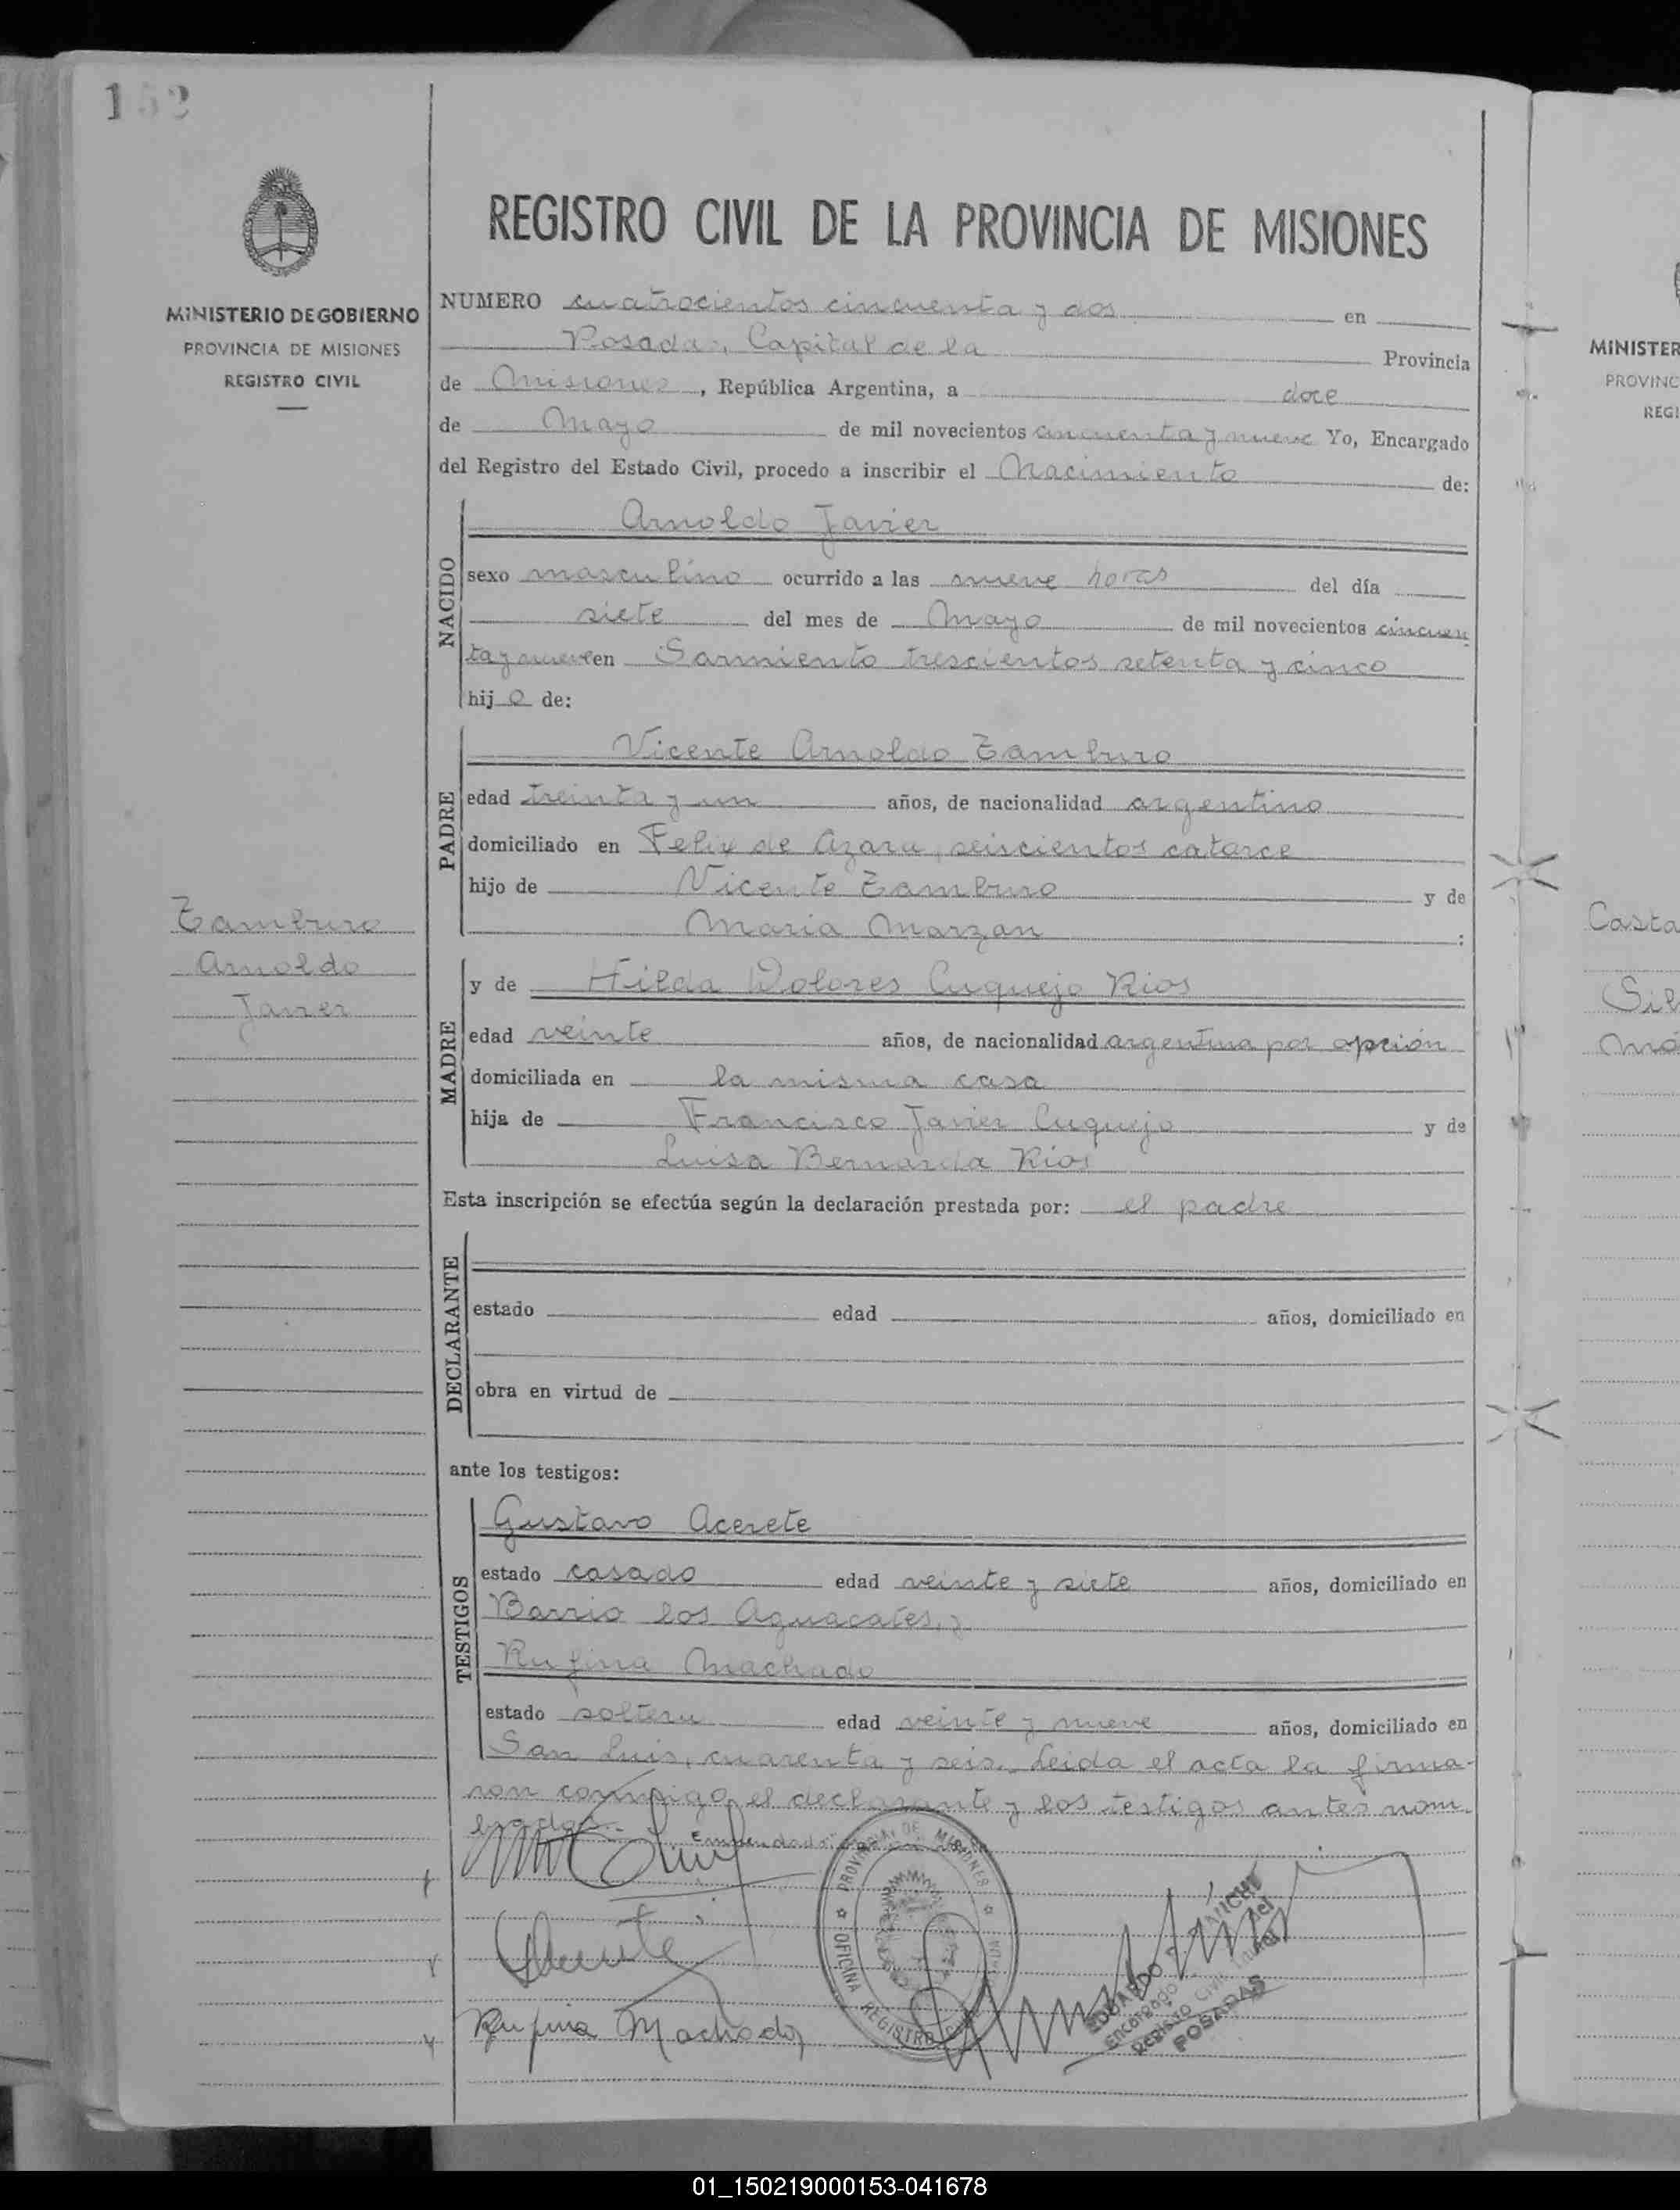 152
MINISTERIO DE GOBIERNO
PROVINCIA DE MISIONES
REGISTRO CIVIL
Zamburo
Arnoldo
Javier
REGISTRO CIVIL DE LA PROVINCIA DE MISIONES
NUMERO cuatrocientos cincuenta y dos en
Posadas, Capital de la Provincia
de Misiones, República Argentina, a doce
de Mayo de mil novecientos cincuenta y nueve Yo, Encargado
del Registro del Estado Civil, procedo a inscribir el Nacimiento de:
NACIDO
Arnoldo Javier
sexo masculino ocurrido a las nueve horas del día
siete del mes de Mayo de mil novecientos cincuen
ta y nueve en Sarmiento trescientos setenta y cinco
hijo de:
PADRE
Vicente Arnoldo Zamburo
edad treinta y un años, de nacionalidad argentino
domiciliado en Felix de Azara, seiscientos catorce
hijo de Vicente Zamburo y de
Maria Marzan :
MADRE
y de Hilda Dolores Cuquejo Rios
edad veinte años, de nacionalidad argentina por opción
domiciliada en la misma casa
hija de Francisco Javier Cuquejo y de
Luisa Bernarda Rios
Esta inscripción se efectúa según la declaración prestada por: el padre
DECLARANTE
estado edad años, domiciliado en
obra en virtud de
ante los testigos:
TESTIGOS
Gustavo Acerete
estado casado edad veinte y siete años, domiciliado en
Barrio los Aguacates, y
Rufina Machado
estado soltera edad veinte y nueve años, domiciliado en
San Luis, cuarenta y seis. Leida el acta la firma-
ron conmigo el declarante y los testigos antes nom-
brados.- Enmendado:
PROVINCIA DE MISIONES
OFICINA REGISTRO
EDUARDO
Encargado del
Registro Civil
POSADAS
Rufina Machado
MINISTER
PROVINC
REGI
Casta
Sil
Ma
01_150219000153-041678